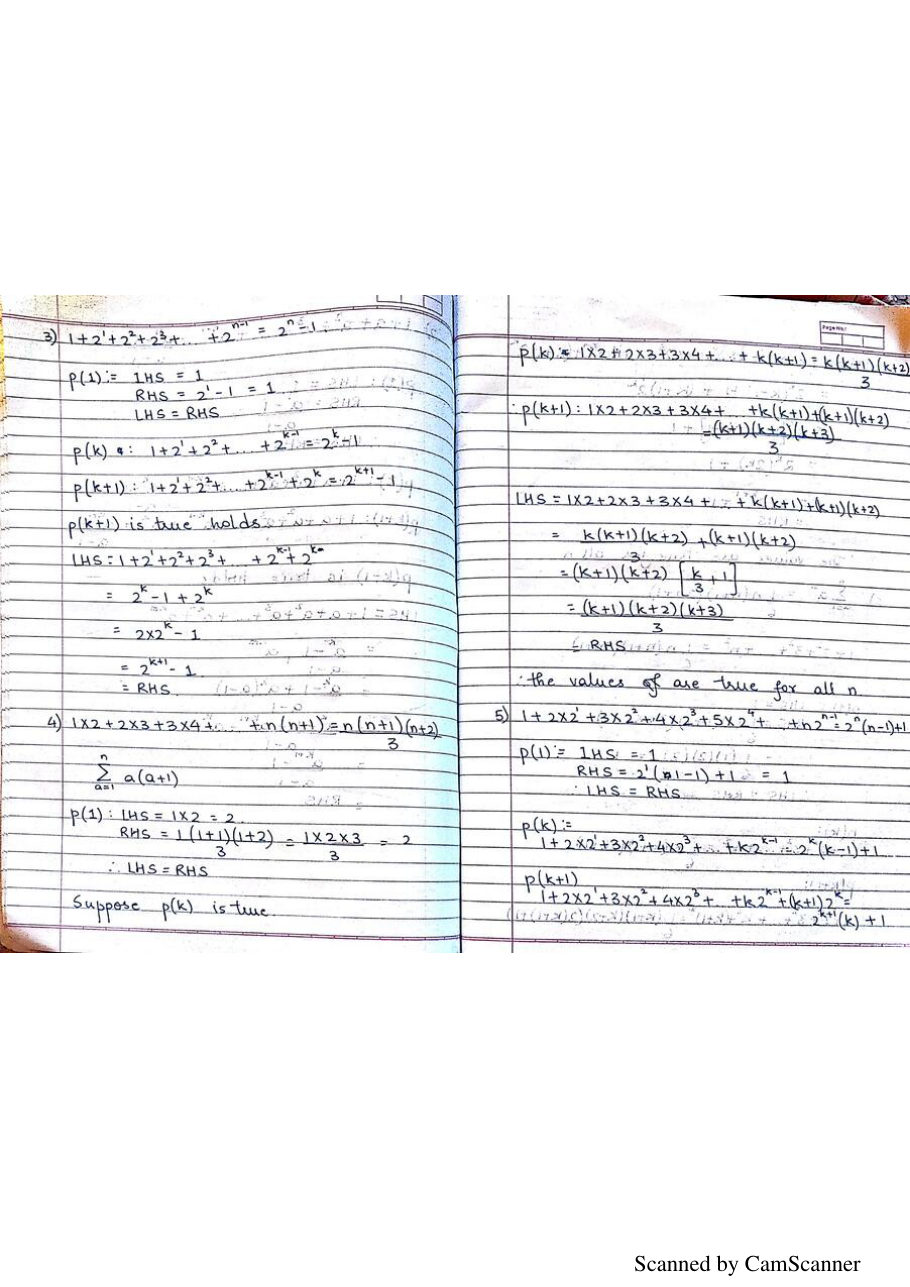 3) 1+2¹+2²+2³+... +2ⁿ⁻¹ = 2ⁿ-1
p(1):= LHS = 1
RHS = 2¹-1 = 1
LHS = RHS
p(k) : 1+2¹+2²+... +2ᵏ⁻¹ = 2ᵏ-1
p(k+1) : 1+2¹+2²+... +2ᵏ⁻¹+2ᵏ = 2ᵏ⁺¹-1
p(k+1) is true holds
LHS : 1+2¹+2²+2³+ ... +2ᵏ⁻¹+2ᵏ
= 2ᵏ-1+2ᵏ
= 2x2ᵏ-1
= 2ᵏ⁺¹-1
= RHS
4) 1x2+2x3+3x4+... +n(n+1) = n(n+1)(n+2)
3
n
∑ a(a+1)
a=1
p(1) : LHS = 1x2 = 2
RHS = 1(1+1)(1+2) = 1x2x3 = 2
3 3
∴ LHS = RHS
Suppose p(k) is true
Page No.:
p(k): 1x2+2x3+3x4+... + k(k+1) = k(k+1)(k+2)
3
p(k+1) : 1x2+2x3+3x4+ ... +k(k+1)+(k+1)(k+2)
=(k+1)(k+2)(k+3)
3
LHS = 1x2+2x3+3x4+ ... +k(k+1)+(k+1)(k+2)
= k(k+1)(k+2) +(k+1)(k+2)
3
= (k+1)(k+2) [k/3 +1]
= (k+1)(k+2)(k+3)
3
= RHS
∴ the values of are true for all n
5) 1+2x2¹+3x2²+4x2³+5x2⁴+ ... +n2ⁿ⁻¹=2ⁿ(n-1)+1
p(1):= LHS = 1
RHS = 2¹(1-1)+1 = 1
∴ LHS = RHS
p(k):=
1+2x2¹+3x2²+4x2³+... +k2ᵏ⁻¹=2ᵏ(k-1)+1
p(k+1)
1+2x2¹+3x2²+4x2³+... +k2ᵏ⁻¹+(k+1)2ᵏ=
2ᵏ⁺¹(k)+1
Scanned by CamScanner